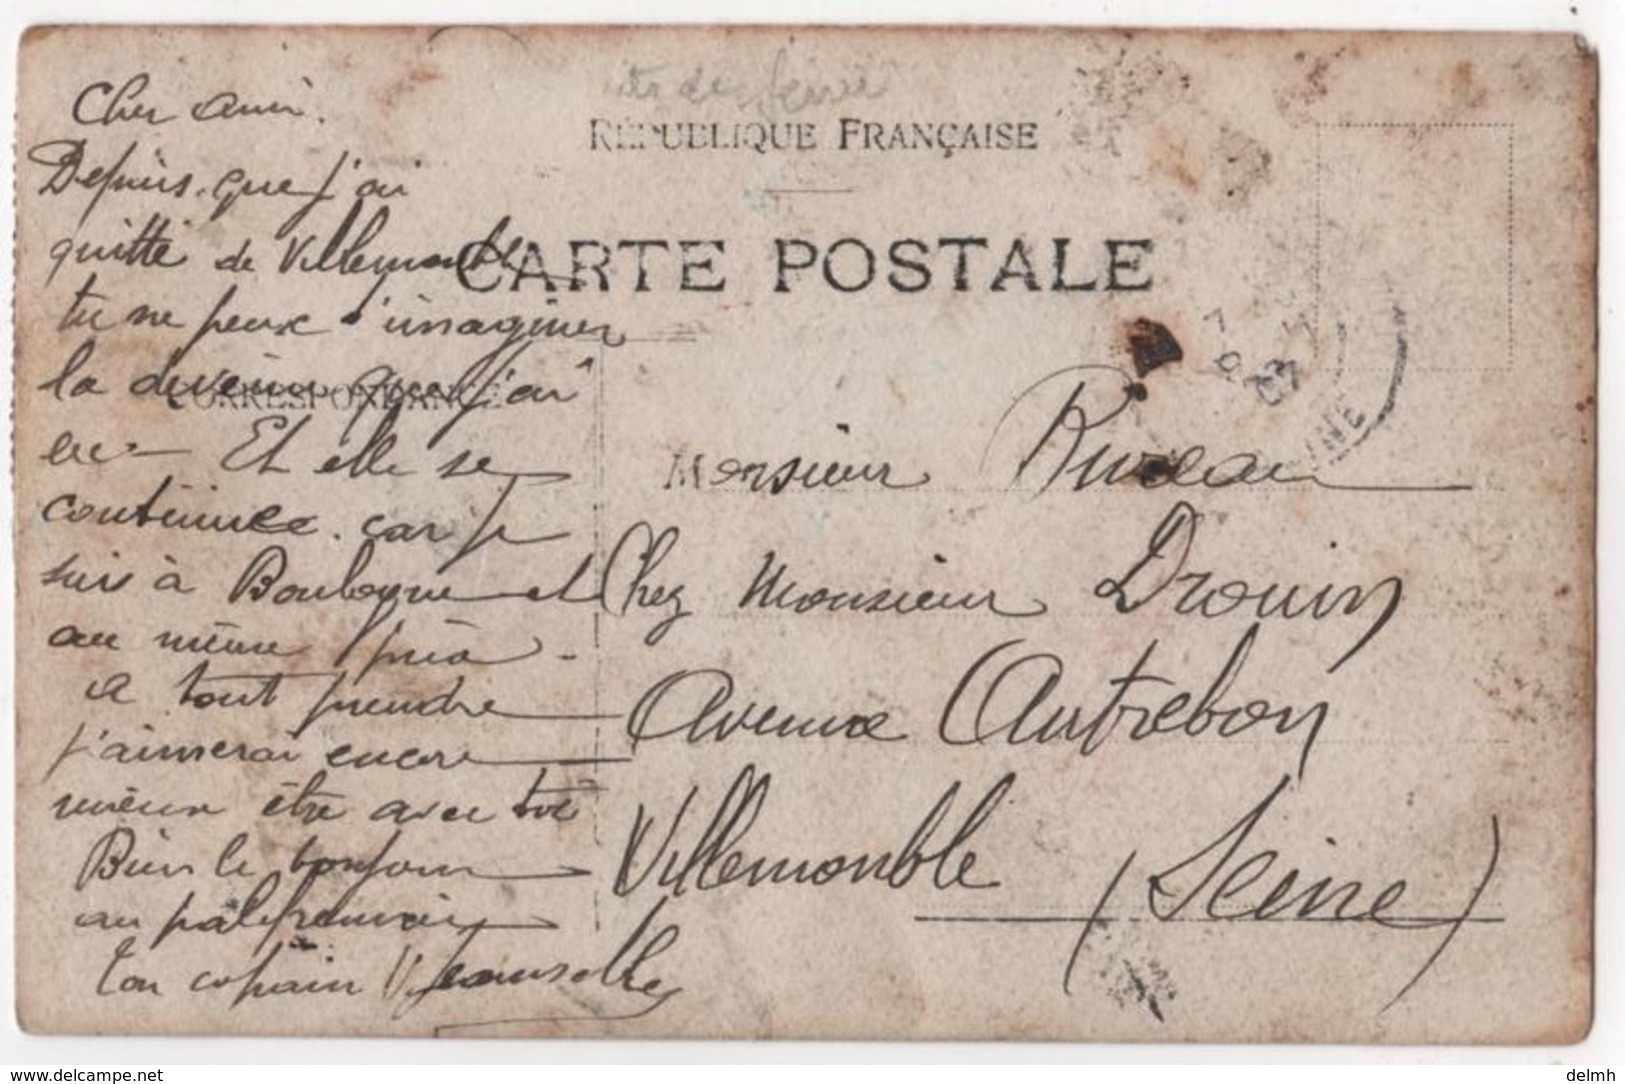 Cher ami.
Depuis que j'ai
quitté de Villemomble
tu ne peux t'imaginer
la devéine que j'ai
eu - Et elle se
continuee. car je
suis à Boulogne et
au même prix -
A tout prendre
j'aimerai encore
mieux être avec toi
Bien le bonjour
au palefrenier
ton copain
RÉPUBLIQUE FRANÇAISE
CARTE POSTALE
CORRESPONDANCE
Monsieur
Chez Monsieur Drouin
Avenue Outrebon
Villemonble (Seine)
07
INE
www.delcampe.net
delmh